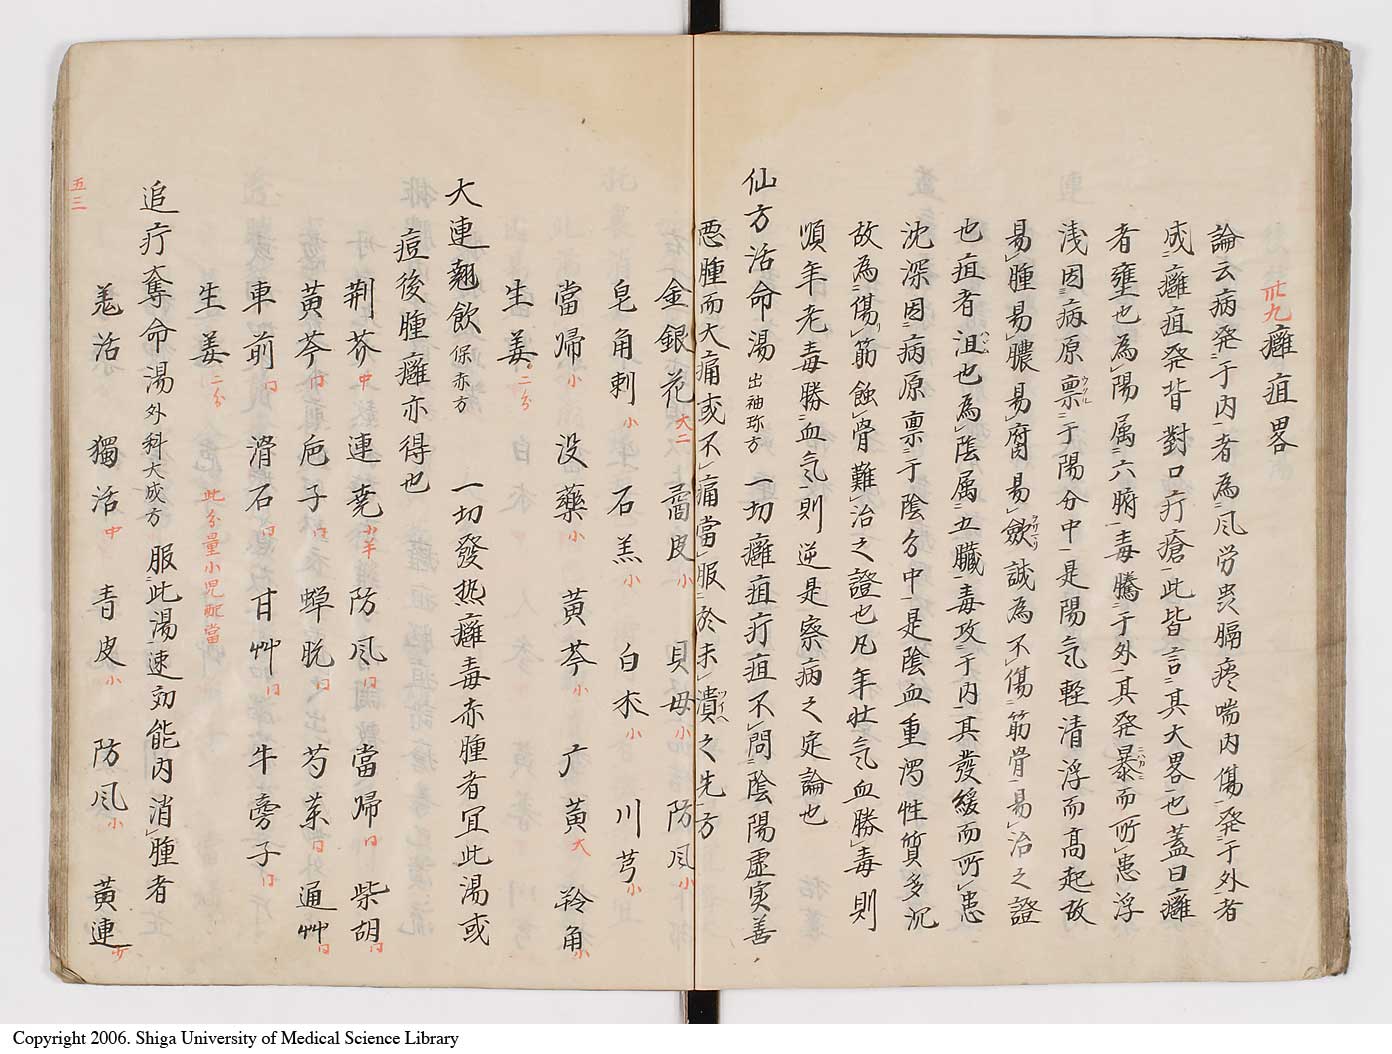 卅九 癰疽畧
論云病発于内者為風労毀膈疼喘内傷発于外者
成癰疽発背對口疔瘡此皆言其大畧也蓋曰癰
者壅也為陽属六腑毒騰于外其発暴而所患浮
浅因病原禀于陽分中是陽気軽清浮而高起故
易腫易膿易腐易歛誠為不傷筋骨易治之證
也疽者沮也為陰属五臓毒攻于内其發緩而所患
沈深因病原禀于陰分中是陰血重濁性質多沉
故為傷筋蝕骨難治之證也凡年壮気血勝毒則
順年老毒勝血気則逆是察病之定論也
仙方活命湯 出袖珎方 一切癰疽疔疽不問陰陽虚実善
悪腫而大痛或不痛當服於未潰之先方
金銀花大二 陳皮小 貝母小 防風小
皂角刺小 石羔小 白朮小 川芎小
當帰小 没藥小 黄芩小 广黄大 羚角小
生姜二分
大連翹飲 保赤方 一切發热癰毒赤腫者宜此湯或
痘後腫癰亦得也
荆芥中 連尭小半 防風同 當帰同 柴胡同
黄芩同 巵子同 蟬脱同 芍薬同 通艸同
車前同 滑石同 甘艸同 牛旁子同
生姜二分 此分量小児配當
追疔奪命湯 外科大成方 服此湯速効能内消腫者
羌活 獨活中 青皮小 防風小 黄連少
五三
Copyright 2006. Shiga University of Medical Science Library